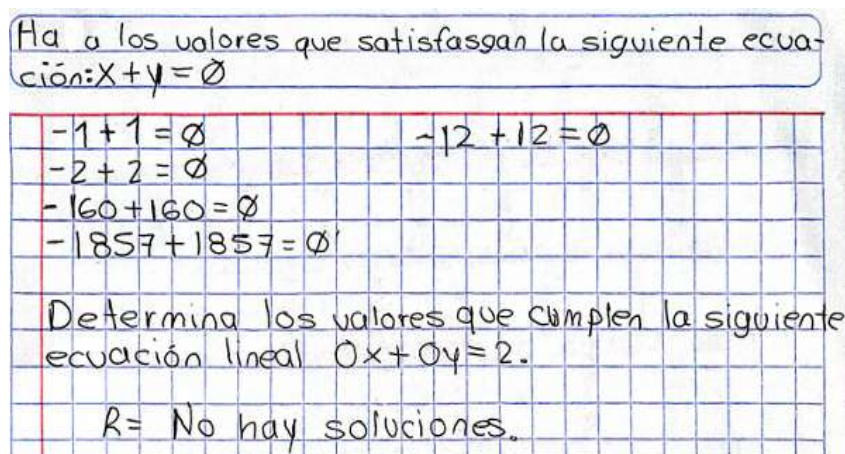 Ha a los valores que satisfasgan la siguiente ecua-
ción: x + y = Ø
-1 + 1 = Ø
-12 + 12 = Ø
-2 + 2 = Ø
-160 + 160 = Ø
-1857 + 1857 = Ø
Determina los valores que cumplen la siguiente
ecuación lineal 0x + 0y = 2.
R= No hay soluciones.